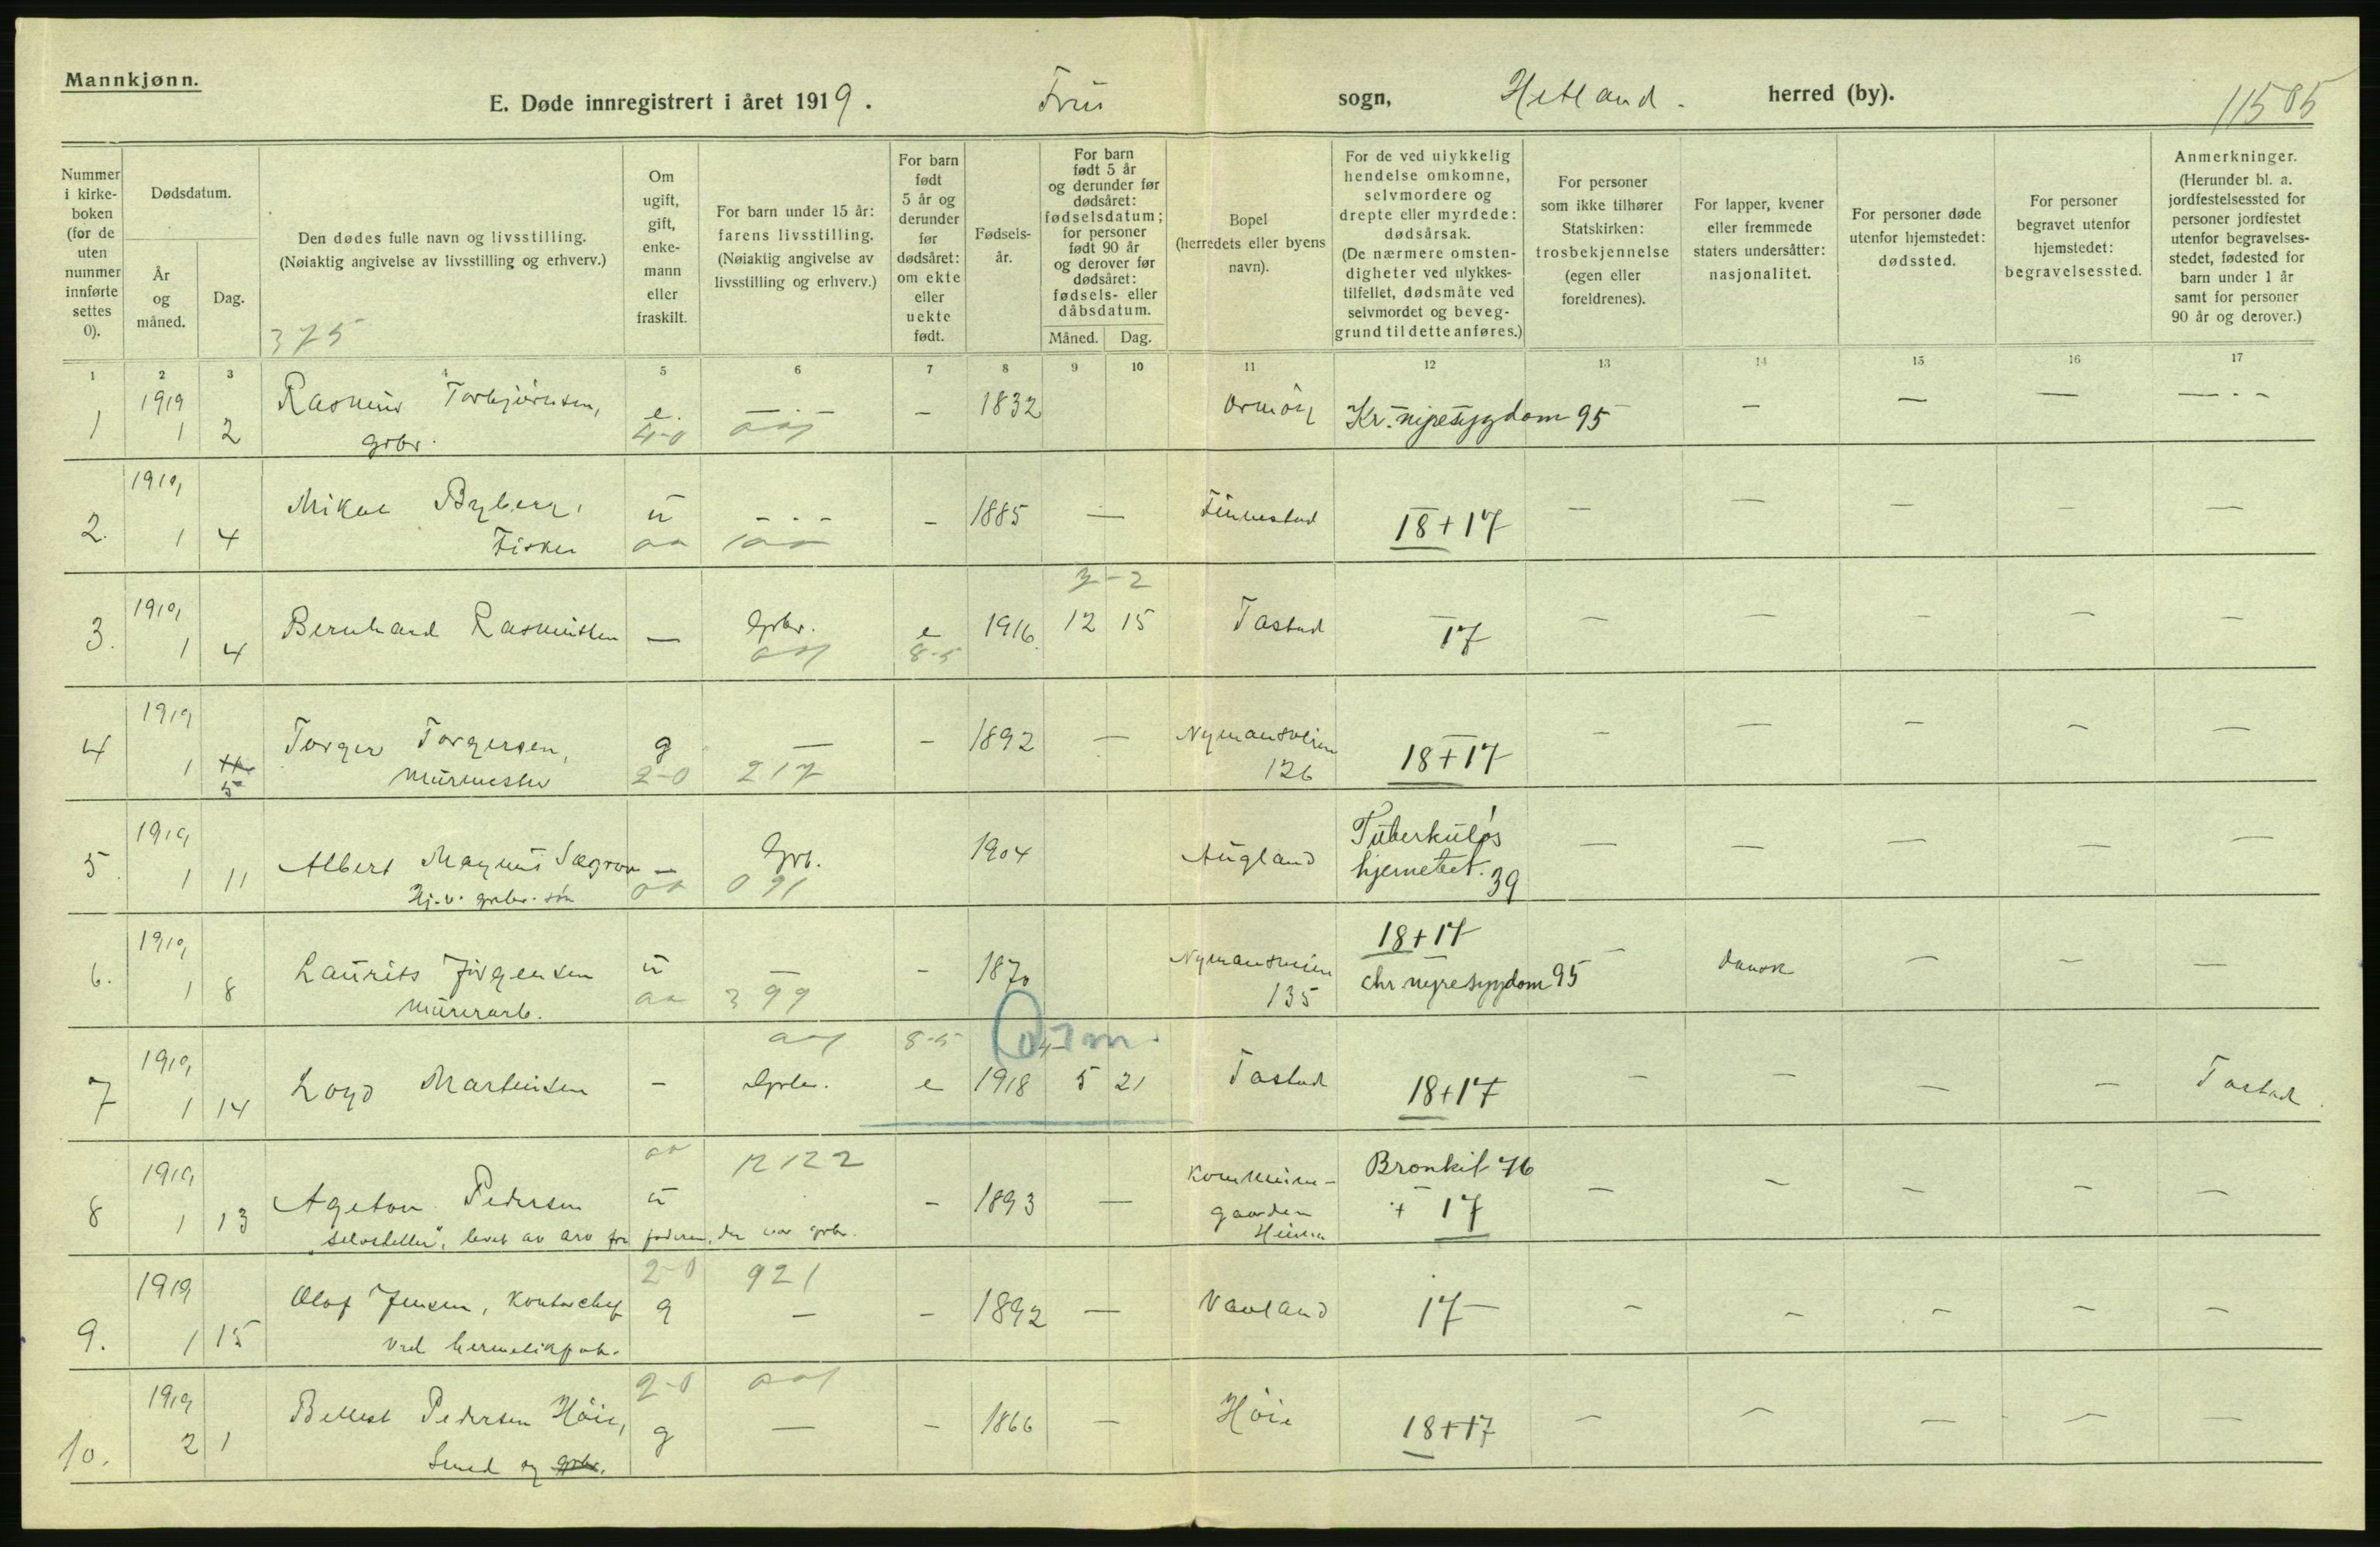 Mannkjønn.
E. Døde innregistrert i året 1919. Frue sogn, Hetland. herred (by). 11585
Nummer i kirkeboken (for de uten nummer innførte settes 0).
Dødsdatum.
År og måned.
Dag.
Den dødes fulle navn og livsstilling.
(Nøiaktig angivelse av livsstilling og erhverv.)
375
Om ugift, gift, enkemann eller fraskilt.
For barn under 15 år: farens livsstilling. (Nøiaktig angivelse av livsstilling og erhverv.)
For barn født 5 år og derunder før dødsåret: om ekte eller uekte født.
Fødselsår.
For barn født 5 år og derunder før dødsåret: fødselsdatum; for personer født 90 år og derover før dødsåret: fødsels- eller dåbsdatum.
Måned. Dag.
Bopel (herredets eller byens navn).
For de ved ulykkelig hendelse omkomne, selvmordere og drepte eller myrdede: dødsårsak. (De nærmere omstendigheter ved ulykkestilfellet, dødsmåte ved selvmordet og beveggrund til dette anføres.)
For personer som ikke tilhører Statskirken: trosbekjennelse (egen eller foreldrenes).
For lapper, kvener eller fremmede staters undersåtter: nasjonalitet.
For personer døde utenfor hjemstedet: dødssted.
For personer begravet utenfor hjemstedet: begravelsessted.
Anmerkninger. (Herunder bl. a. jordfestelsessted for personer jordfestet utenfor begravelsesstedet, fødested for barn under 1 år samt for personer 90 år og derover.)
1 2 3 4 5 6 7 8 9 10 11 12 13 14 15 16 17
1 1919 1 2 Rasmus Torbjørnsen, e. — - — 1832 Ormøy Kr. nyresygdom 95 — — — —
grbr. 4-0
2. 1919 1 4 Mikal Byberg, u — — 1885 — Finnestad 18+17 — — — — —
Fisker
3-2
3. 1919 1 4 Bernhard Rasmussen — Grbr. e 1916 12 15 Tastad 17 — — — — —
8-5
4 1919 1 5 Torger Torgersen, g — — 1892 — Nymansveien 126 18+17 — — — — —
murmester 2-0 217
5. 1919 1 11 Albert Magnus — Grb. 1904 Augland Tuberkuløs hjernebet. 39 — — — — —
Hj.v. grbr. søn 091
6. 1919 1 8 Laurits Jørgensen u — — 1870 Nymansveien 135 18+17 chr. nyresygdom 95 — dansk — — —
murerarb. 399
8-5 m.
7 1919 1 14 Loyd Martinsen — Grbr. e 1918 5 21 Tastad 18+17 — — — — Tastad
12122
8 1919 1 13 Ageton Pedersen u — 1893 — Kommune-gaarden Bronkit 76 + 17 — — — — —
"selvsteller", levet av arv fra faderen, der var grbr.
2-0 921
9. 1919 1 15 Olaf Jensen, Kontorchef g — — 1892 — Vauland 17 — — — — —
ved hermetikfab.
2-0
10. 1919 2 1 Pedersen Høie, g — — 1866 — Høie 18+17 — — — — —
Smed og grbr.